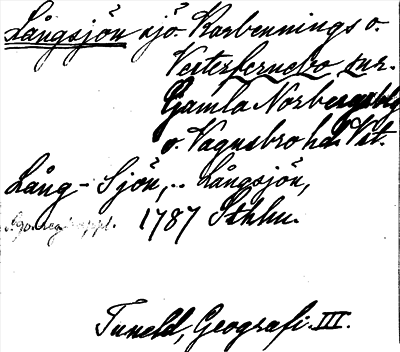 Långsjön sjö Karbennings o.
Vesterfernebo snr.
Gamla Norbergsbg
o. Vagnsbro hd Vst.
Lång-Sjön, .. Långsjön,
1787 Sthlm.
Tuneld, Geografi III.